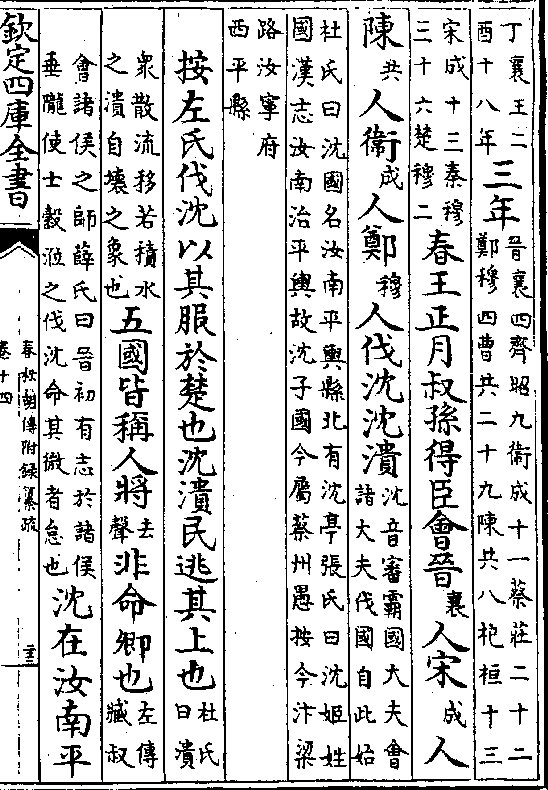 丁襄王二
酉十八年
三年
晉襄四齊昭九衛成十一蔡莊二十二
鄭穆四曹共二十九陳共八杞桓十三
宋成十三秦穆
三十六楚穆二
春王正月叔孫得臣會晉襄人宋成人
陳共人衛成人鄭穆人伐沈沈潰
沈音審霸國大夫會
諸大夫伐國自此始
杜氏曰沈國名汝南平輿縣北有沈亭張氏曰沈姬姓
國漢志汝南治平輿故沈子國今屬蔡州愚按今汴梁
路汝寧府
西平縣
按左氏伐沈以其服於楚也沈潰民逃其上也
杜氏
曰潰
衆散流移若積水
之潰自壞之象也
五國皆稱人將去聲非命卿也
左傳
臧叔
會諸侯之師薛氏曰晉初有志於諸侯
垂隴使士縠涖之伐沈命其微者怠也
沈在汝南平
欽定四庫全書
春秋胡傳附録纂疏
卷十四